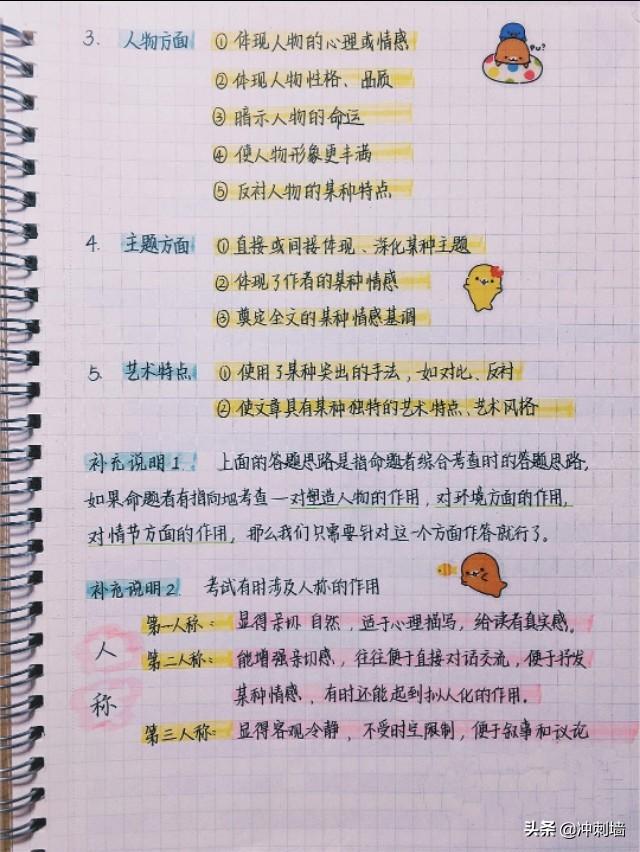 3. 人物方面 ① 体现人物的心理或情感
Pu?
② 体现人物性格、品质
③ 暗示人物的命运
④ 使人物形象更丰满
⑤ 反衬人物的某种特点
4. 主题方面 ① 直接或间接体现、深化某种主题
② 体现了作者的某种情感
③ 奠定全文的某种情感基调
5. 艺术特点 ① 使用了某种突出的手法，如对比、反衬
② 使文章具有某种独特的艺术特点、艺术风格
补充说明1. 上面的答题思路是指命题者综合考查时的答题思路，
如果命题者有指向地考查一对塑造人物的作用，对环境方面的作用，
对情节方面的作用，那么我们只需要针对这一个方面作答就行了。
补充说明2. 考试有时涉及人称的作用
人称
第一人称： 显得亲切 自然，适于心理描写，给读者真实感。
第二人称： 能增强亲切感，往往便于直接对话交流，便于抒发
某种情感，有时还能起到拟人化的作用。
第三人称： 显得客观冷静，不受时空限制，便于叙事和议论
头条 @冲刺墙